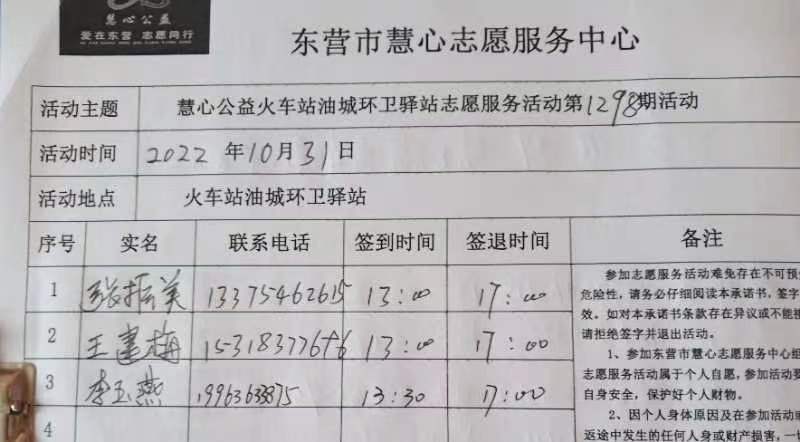 慧心公益
爱在东营 志愿同行
东营市慧心志愿服务中心
活动主题 慧心公益火车站油城环卫驿站志愿服务活动第1298期活动
活动时间 2022 年10月31日
活动地点 火车站油城环卫驿站
序号 实名 联系电话 签到时间 签退时间 备注
1 张振美 13375462615 13:00 17:00
2 王建梅 13:00 17:00
3 李玉燕 13:30 17:00
4
参加志愿服务活动难免存在不可预
危险性，请务必仔细阅读本承诺书，签字
效。如对本承诺书条款存在异议或不能接
请拒绝签字并退出活动。
1、参加东营市慧心志愿服务中心组
志愿服务活动属于个人自愿，参加活动要
自身安全，保护好个人财物。
2、因个人身体原因及在参加活动或
返途中发生的任何人身或财产损害，一切